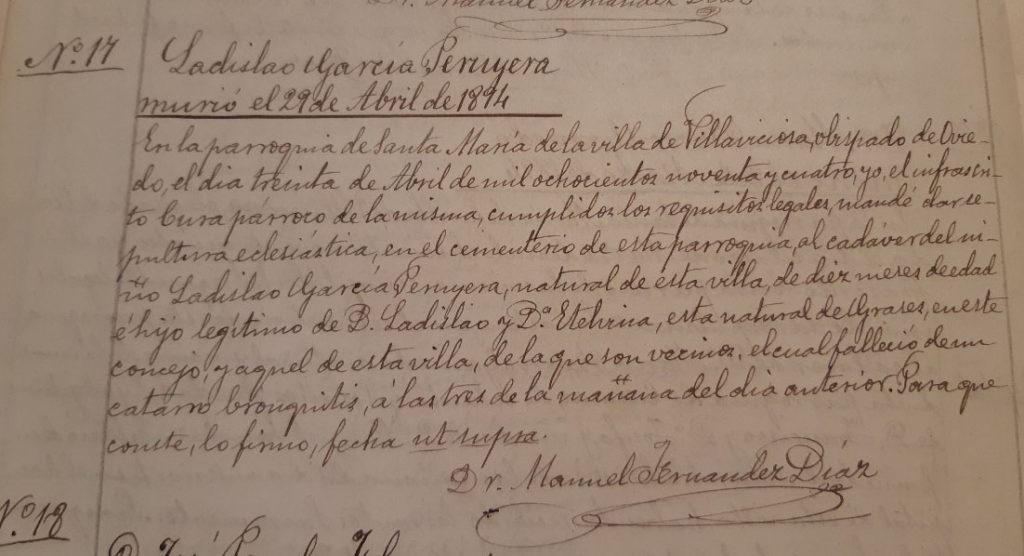 Dr. Manuel Fernández Díaz
Nº. 17
Ladislao García Peruyera
murió el 29 de Abril de 1894
En la parroquia de Santa María de la villa de Villaviciosa, obispado de Ovie-
do, el dia treinta de Abril de mil ochocientos noventa y cuatro, yo, el infrascri-
to Cura párroco de la misma, cumplidos los requisitos legales, mandé dar se-
pultura eclesiástica, en el cementerio de esta parroquia, al cadáver del ni-
ño Ladislao García Peruyera, natural de ésta villa, de diez meses de edad
é hijo legítimo de D. Ladislao y Dª. Etelvina, esta natural de Grases, en este
concejo, y aquel de esta villa, de la que son vecinos, el cual falleció de un
catarro bronquitis, á las tres de la mañana del dia anterior. Para que
conste, lo firmo, fecha ut supra.
Dr. Manuel Fernandez Díaz
Nº. 18